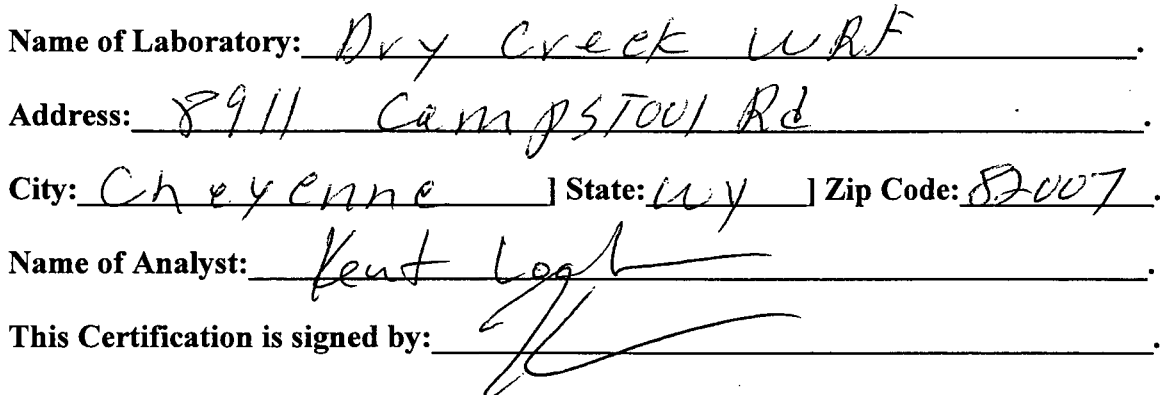 Name of Laboratory: Dry Creek WRF.
Address: 8911 CampSTool Rd.
City: Cheyenne ] State: WY ] Zip Code: 82007.
Name of Analyst: Kent.
This Certification is signed by:.